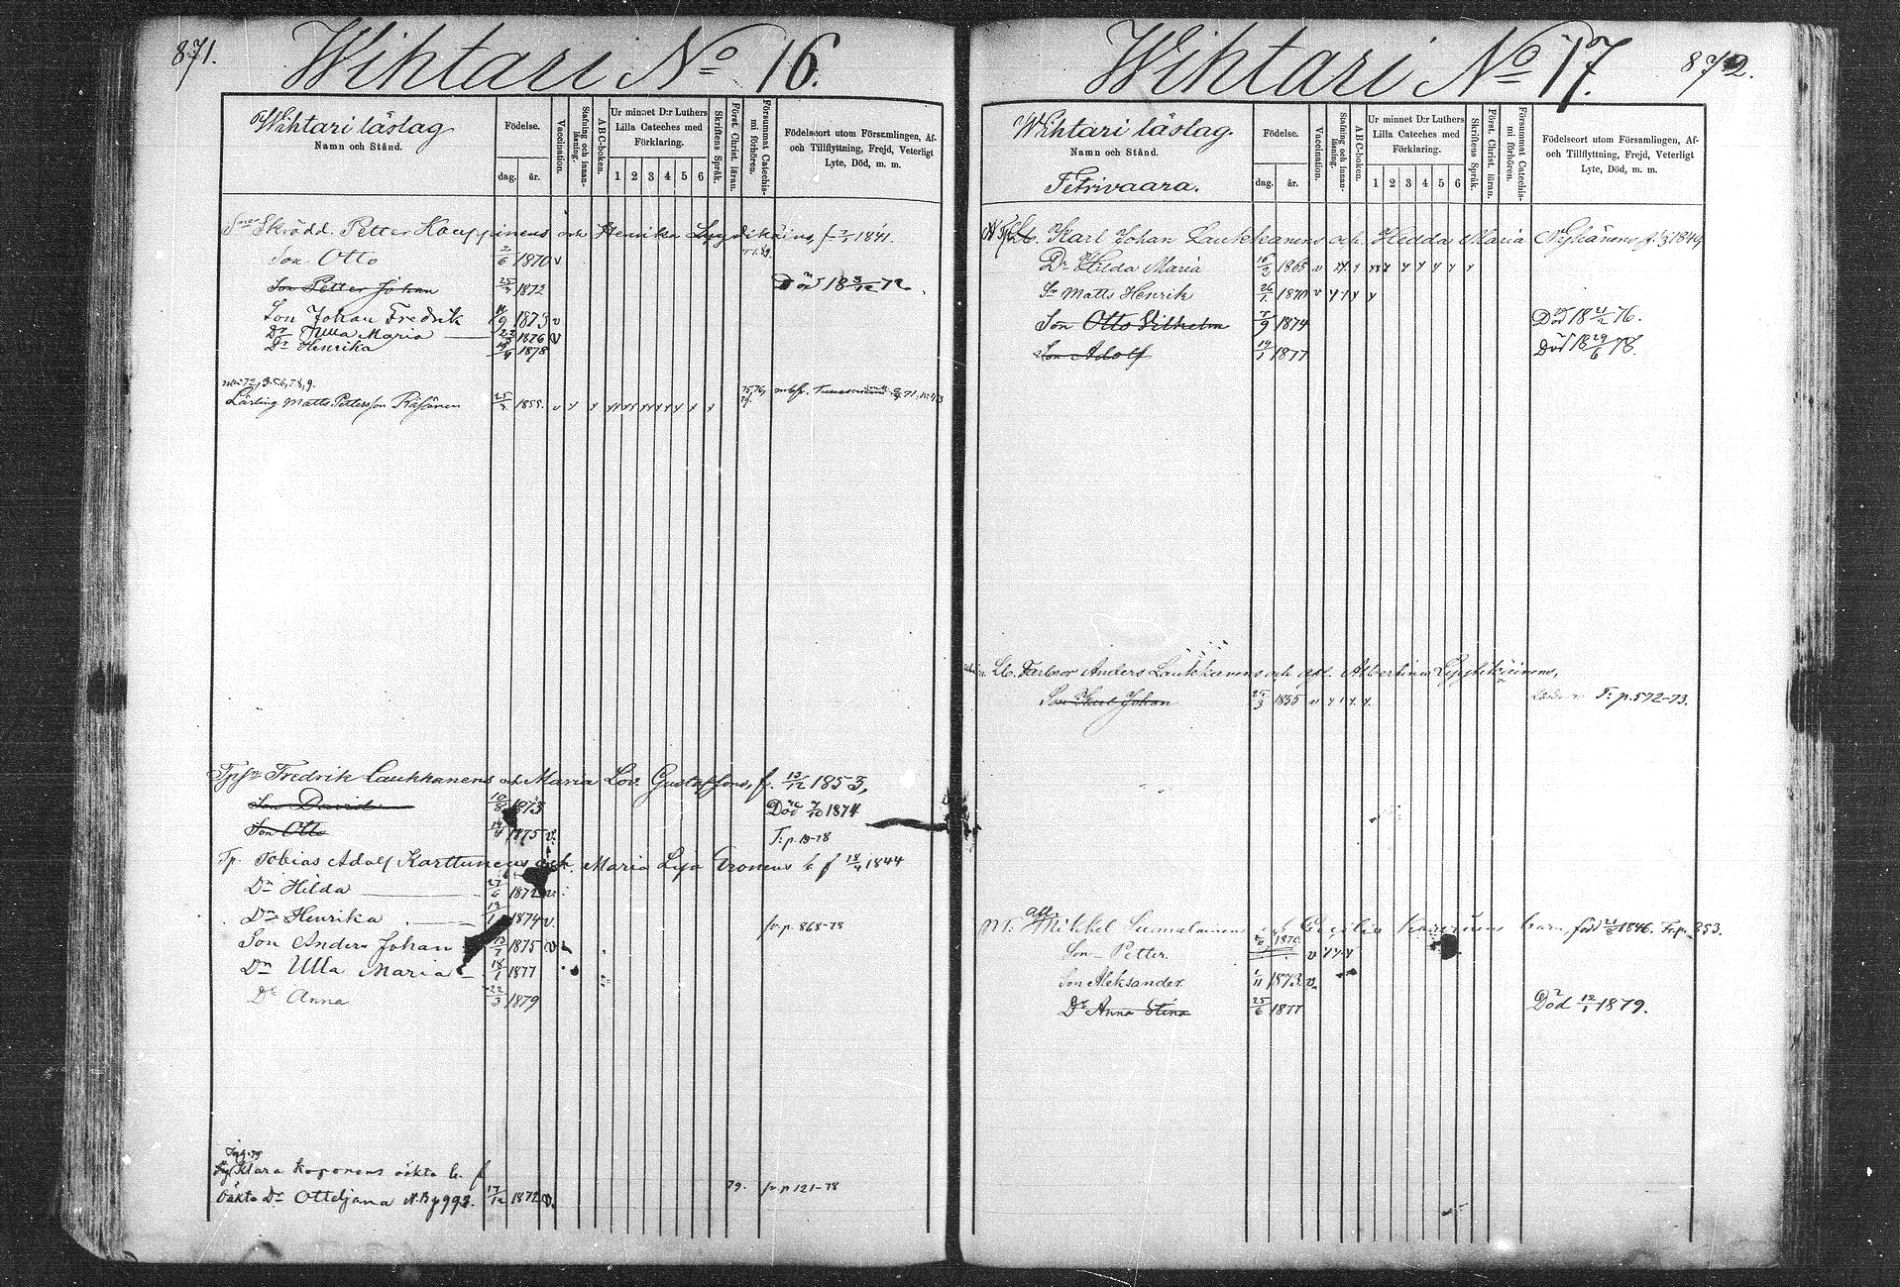 871.
Wihtari No 16.
Wihtari läslag
Namn och Stånd.
Födelse.
dag. år.
Vaccination.
Stafning och innanläsning.
ABC-boken.
Ur minnet D:r Luthers Lilla Cateches med Förklaring.
1 2 3 4 5 6
Skriftens Språk.
Först. Christ. läran.
Försummat Catechismi förhören.
Födelseort utom Församlingen, Af- och Tillflyttning, Frejd, Veterligt Lyte, Död, m. m.
Skrädd. Petter Kauppinens och Henrika Lyydikäins, f. 1841.
Son Otto 2/6 1870 v
Son Petter Johan 1872 Död 18 3/12 72.
Son Johan Fredrik 11/9 1873 v
Dr Ulla Maria 1876 v
Dr Henrika 1878
Lärling Matts Pettersson Räsänen 25/2 1855. v
Fredrik Laukkanens och Maria Lov. Gustafssons, f. 13/12 1853,
Son David 10/8 1873 Död 7/10 1874
Son Otto 14/4 1875 v. T: p. 19-78
Tp. Tobias Adolf Karttunens och Maria Lisa Eronens b. f 18/4 1844
Dr Hilda 27/6 1872 v
Dr Henrika 13/1 1874 v. fr. p. 868-78
Son Anders Johan 12/7 1875 v
Dr Ulla Maria 18/1 1877
Dr Anna 22/3 1879
Klara Koponens oäkta b. f
oäkta Dr Ottiljana N.B p 993. 17/12 1872 v. 79. fr. p 121-78
872.
Wihtari No 17.
Wihtari läslag.
Namn och Stånd.
Tetrivaara.
Födelse.
dag. år.
Vaccination.
Stafning och innanläsning.
ABC-boken.
Ur minnet D:r Luthers Lilla Cateches med Förklaring.
1 2 3 4 5 6
Skriftens Språk.
Först. Christ. läran.
Försummat Catechismi förhören.
Födelseort utom Församlingen, Af- och Tillflyttning, Frejd, Veterligt Lyte, Död, m. m.
Karl Johan Laukkanens och Hedda Maria Nykänens f. 1849
Dr Hilda Maria 1865 v
Sn Matts Henrik 26/1 1870 v
Son Otto Vilhelm 5/9 1874 Död 18 76.
Son Adolf 14/1 1877 Död 18 29/6 78.
Lb. Farbror Anders Laukkanens och Albertina Lyytikäinens,
Son Karl Johan 1855 v T: p. 572-73.
Mikkel Suomalainens och Cecilia Karvinens barn, född 1846. Fr. p. 853.
Son Petter 1870. v
Son Aleksander 1/11 1873. v.
Dr Anna Stina 25/6 1877 Död 12/1 1879.